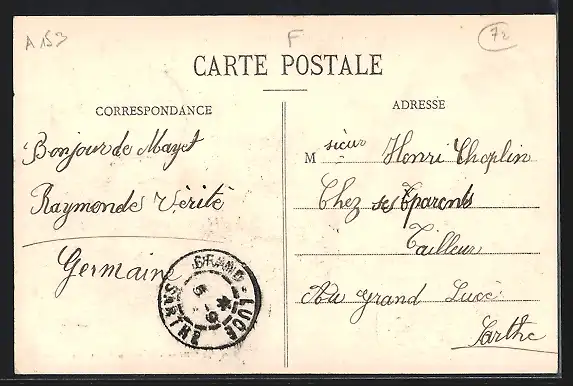 A 153
F
72
CARTE POSTALE
CORRESPONDANCE
Bonjour de Mayet
Raymonde Vérité
Germaine
ADRESSE
Msieur Henri Choplin
Chez ses parents
Tailleur
Au grand Lucé
Sarthe
GRAND-LUCE
SARTHE